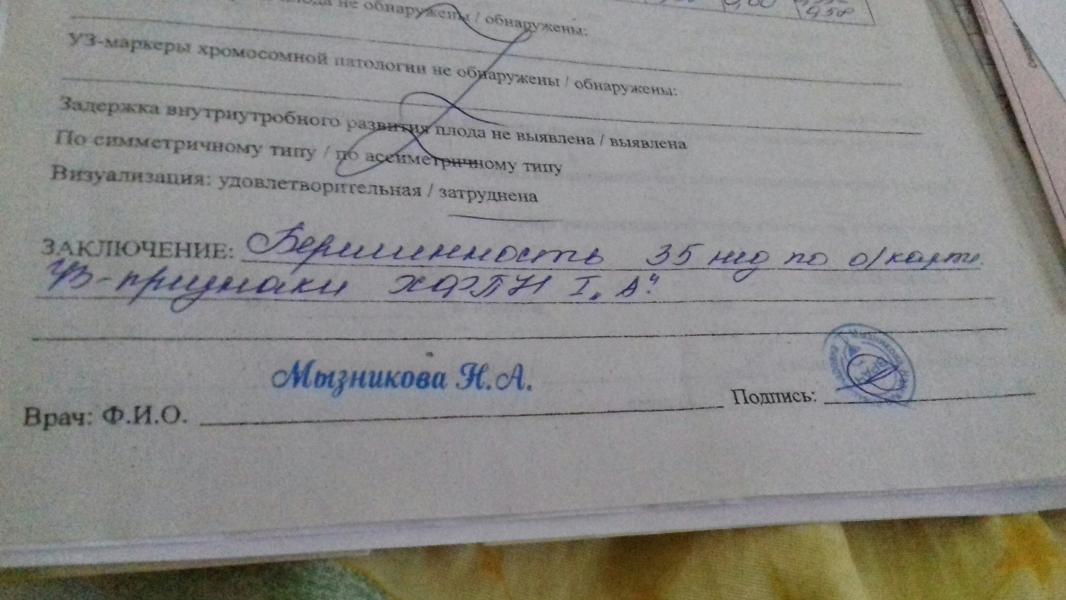 плода не обнаружены / обнаружены:
УЗ-маркеры хромосомной патологии не обнаружены / обнаружены:
Задержка внутриутробного развития плода не выявлена / выявлена
По симметричному типу / по ассиметричному типу
Визуализация: удовлетворительная / затруднена
ЗАКЛЮЧЕНИЕ: Беременность 35 нед по о/карте.
УЗ-признаки ХФПН I "А"
Мызникова Н.А.
Врач: Ф.И.О.
Подпись: